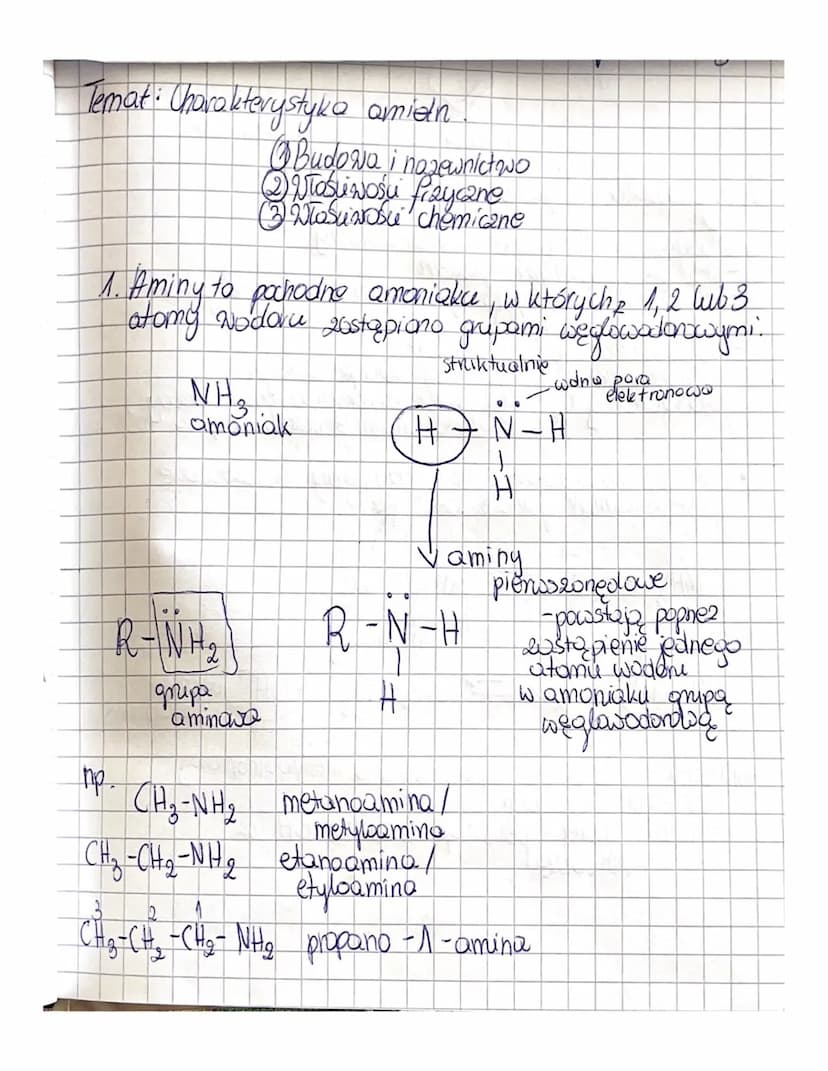 Temat: Charakterystyka amin.
① Budowa i nazewnictwo
② Właściwości fizyczne
③ Właściwości chemiczne
1. Aminy to pochodne amoniaku, w których 1, 2 lub 3
atomy wodoru zostąpiono grupami węglowodorowymi.
struktualnie
NH₃
amoniak
wolna para
elektronowa
H - N̈ - H
|
H
aminy
pierwszorzędowe
R - N̈H₂
grupa
aminowa
R - N̈ - H
|
H
- powstają poprzez
zastąpienie jednego
atomu wodoru
w amoniaku grupą
węglowodorową
np.
CH₃-NH₂ metanoamina /
metyloamina
CH₃-CH₂-NH₂ etanoamina /
etyloamina
3 2 1
CH₃-CH₂-CH₂-NH₂ propano-1-amina